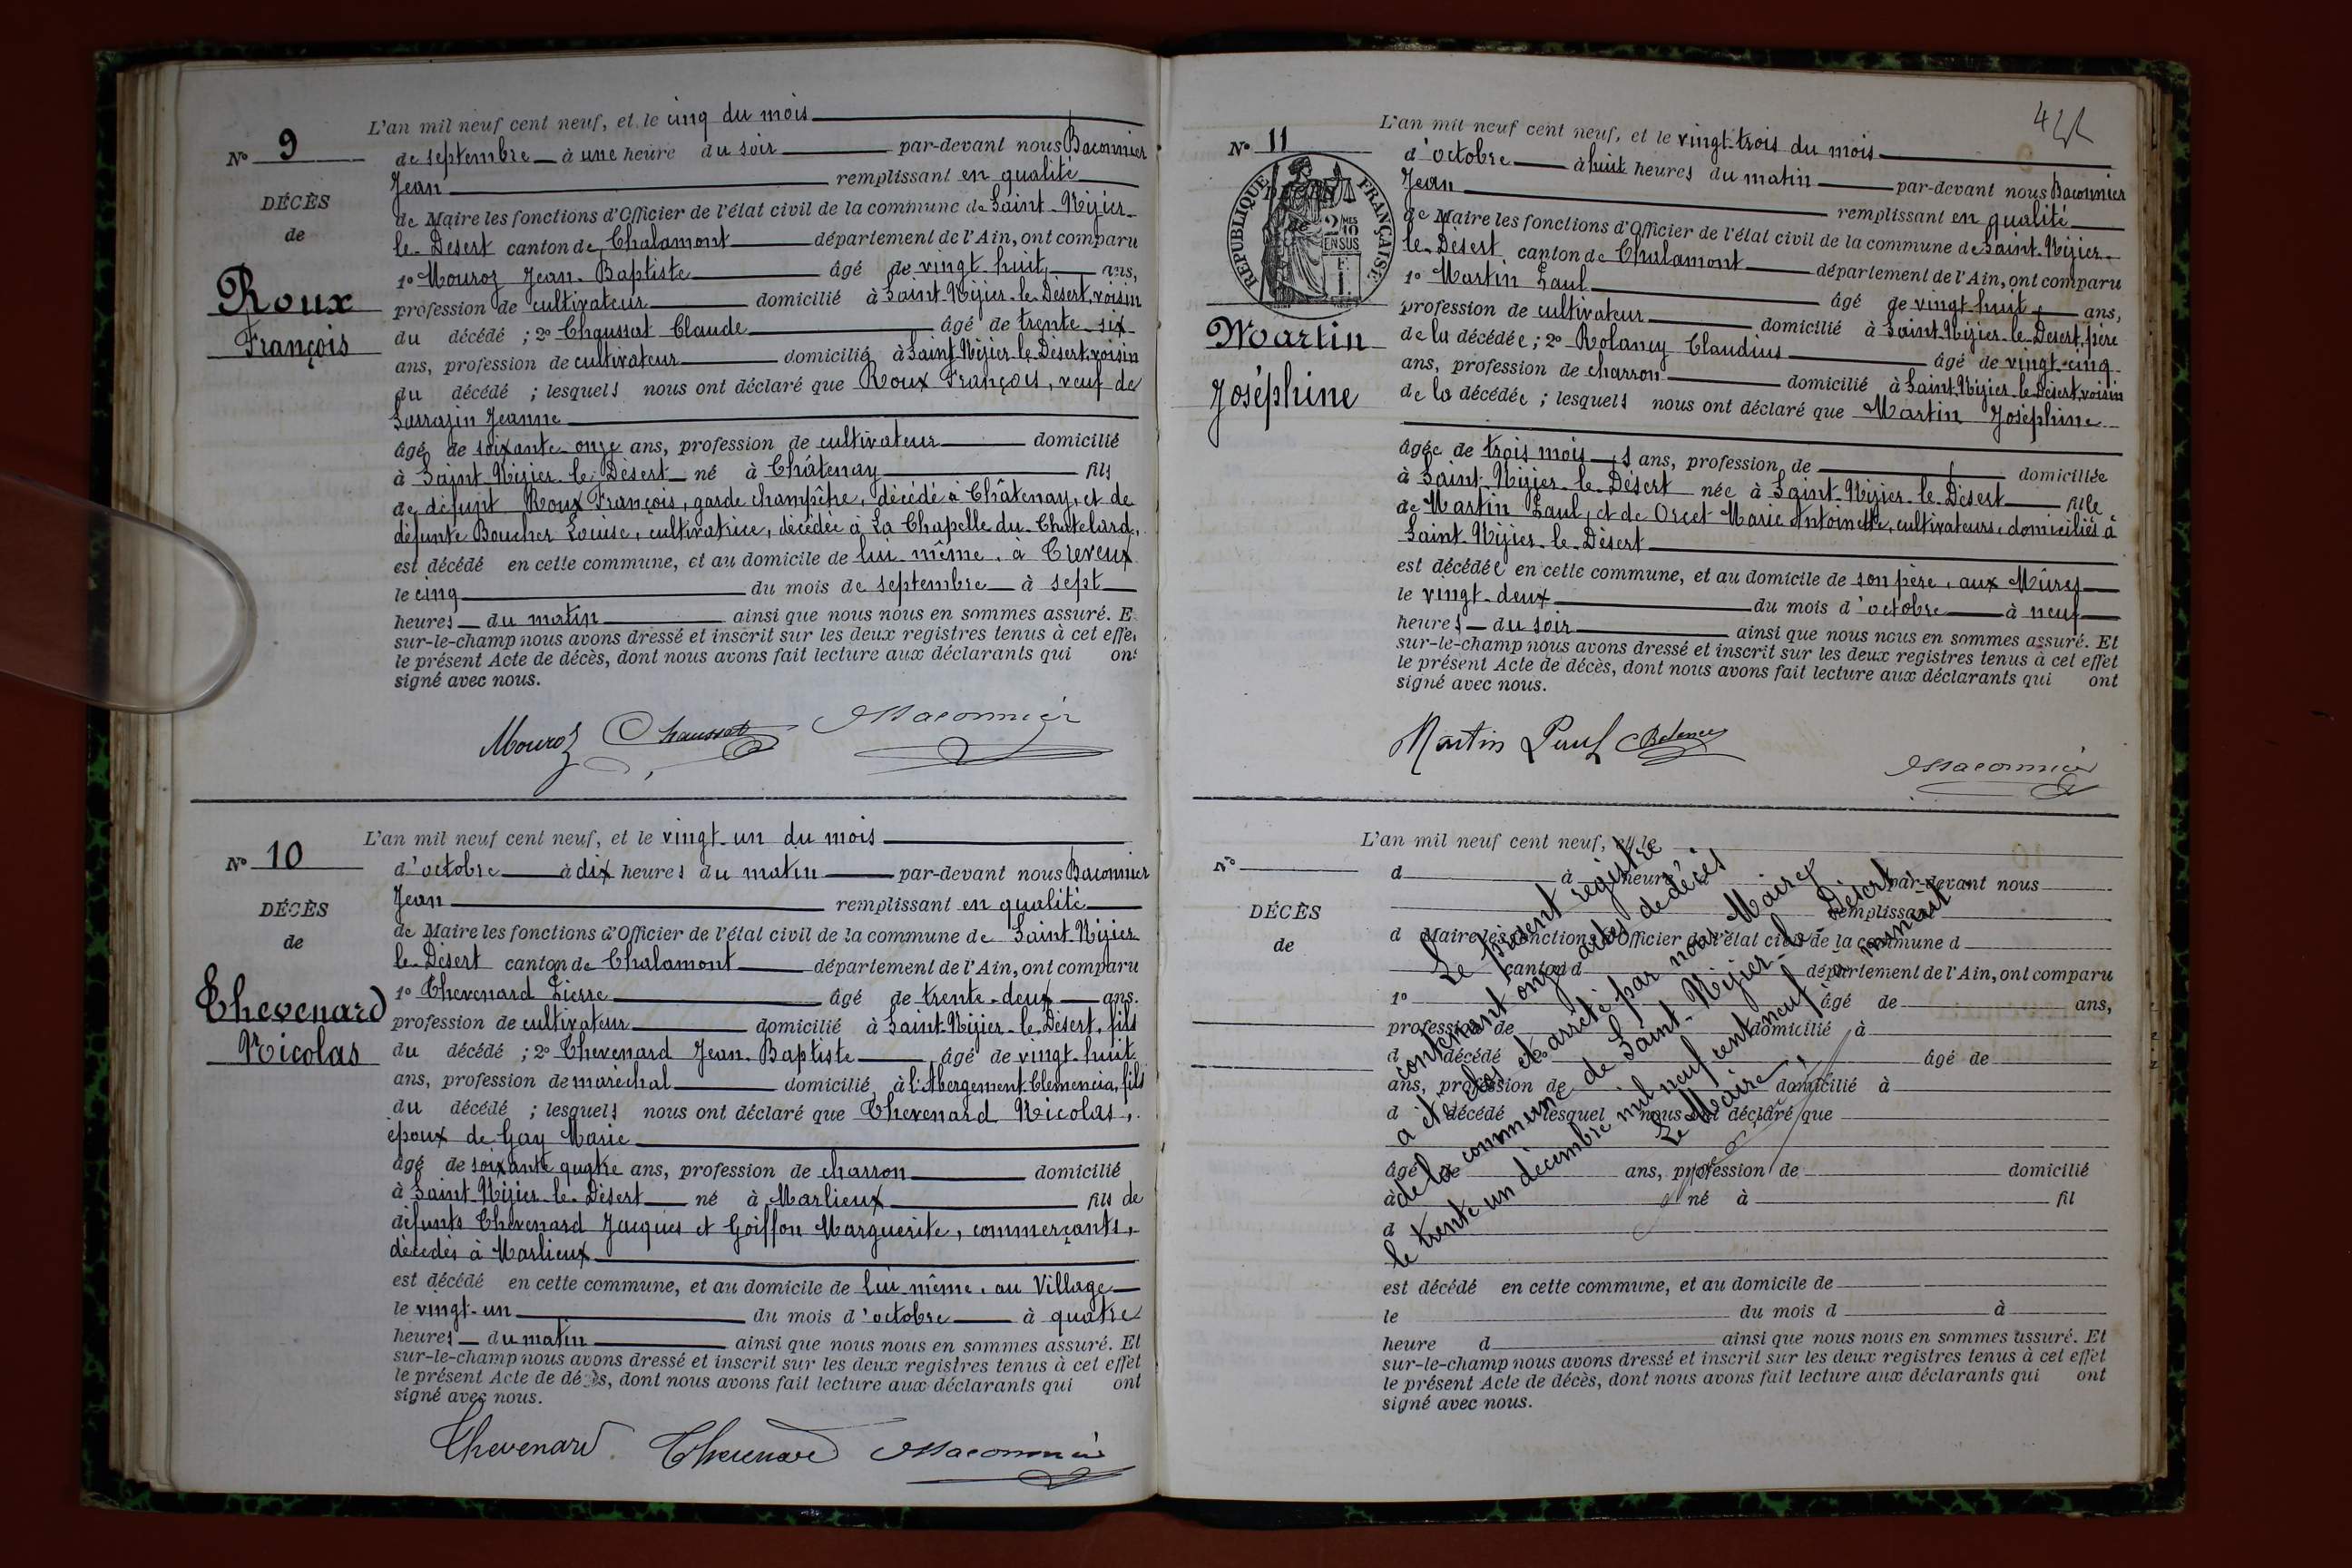 L'an mil neuf cent neuf, et le cinq du mois
N° 9
de septembre à une heure du soir par-devant nous Baconnier
Jean remplissant en qualité
DÉCÈS
de Maire les fonctions d'Officier de l'état civil de la commune de Saint-Nizier-
de
le-Désert canton de Chalamont département de l'Ain, ont comparu
1° Mouroz Jean-Baptiste âgé de vingt-huit ans,
Roux
profession de cultivateur domicilié à Saint-Nizier-le-Désert, voisin
François
du décédé ; 2° Chaussat Claude âgé de trente-six
ans, profession de cultivateur domicilié à Saint-Nizier-le-Désert, voisin
du décédé ; lesquels nous ont déclaré que Roux François, veuf de
Sarrazin Jeanne
âgé de soixante-onze ans, profession de cultivateur domicilié
à Saint-Nizier-le-Désert né à Châtenay fils
de défunt Roux François, garde champêtre, décédé à Châtenay, et de
défunte Boucher Louise, cultivatrice, décédée à La Chapelle-du-Chatelard,
est décédé en cette commune, et au domicile de lui-même, à Creveux
le cinq du mois de septembre à sept
heures du matin ainsi que nous nous en sommes assuré. E
sur-le-champ nous avons dressé et inscrit sur les deux registres tenus à cet effe
le présent Acte de décès, dont nous avons fait lecture aux déclarants qui ont
signé avec nous.
Mouroz Chaussat JBaconnier
L'an mil neuf cent neuf, et le vingt-un du mois
N° 10
d'octobre à dix heures du matin par-devant nous Baconnier
Jean remplissant en qualité
DÉCÈS
de Maire les fonctions d'Officier de l'état civil de la commune de Saint-Nizier
de
le-Désert canton de Chalamont département de l'Ain, ont comparu
1° Thevenard Pierre âgé de trente-deux ans.
Thevenard
profession de cultivateur domicilié à Saint-Nizier-le-Désert, fils
Nicolas
du décédé ; 2° Thevenard Jean-Baptiste âgé de vingt-huit
ans, profession de maréchal domicilié à l'Abergement-Clemencia, fils
du décédé ; lesquels nous ont déclaré que Thevenard Nicolas,
époux de Gay Marie
âgé de soixante quatre ans, profession de charron domicilié
à Saint-Nizier-le-Désert né à Marlieux fils de
défunts Thevenard Jacques et Goiffon Marguerite, commerçants,
décédés à Marlieux
est décédé en cette commune, et au domicile de lui-même, au Village
le vingt-un du mois d'octobre à quatre
heures du matin ainsi que nous nous en sommes assuré. Et
sur-le-champ nous avons dressé et inscrit sur les deux registres tenus à cet effet
le présent Acte de décès, dont nous avons fait lecture aux déclarants qui ont
signé avec nous.
Thevenard Thevenard JBaconnier
L'an mil neuf cent neuf, et le vingt-trois du mois
N° 11
d'octobre à huit heures du matin par-devant nous Baconnier
Jean remplissant en qualité
RÉPUBLIQUE FRANÇAISE
2/10 EN SUS
de Maire les fonctions d'Officier de l'état civil de la commune de Saint-Nizier-
le-Désert canton de Chalamont département de l'Ain, ont comparu
1° Martin Paul âgé de vingt-huit ans,
profession de cultivateur domicilié à Saint-Nizier-le-Désert, père
Martin
de la décédée ; 2° Rolancy Claudius âgé de vingt-cinq
ans, profession de charron domicilié à Saint-Nizier-le-Désert, voisin
Joséphine
de la décédée ; lesquels nous ont déclaré que Martin Joséphine
âgée de trois mois ans, profession de domiciliée
à Saint-Nizier-le-Désert née à Saint-Nizier-le-Désert fille
de Martin Paul, et de Orcet Marie Antoinette, cultivateurs, domiciliés à
Saint-Nizier-le-Désert
est décédée en cette commune, et au domicile de son père, aux Mûres
le vingt-deux du mois d'octobre à neuf
heures du soir ainsi que nous nous en sommes assuré. Et
sur-le-champ nous avons dressé et inscrit sur les deux registres tenus à cet effet
le présent Acte de décès, dont nous avons fait lecture aux déclarants qui ont
signé avec nous.
Martin Paul
JBaconnier
L'an mil neuf cent neuf, et le
N°
d à heure par-devant nous
remplissant
DÉCÈS
d Maire les fonctions d'Officier de l'état civil de la commune d
de
canton d département de l'Ain, ont comparu
1° âgé de ans,
profession de domicilié à
d décédé âgé de
ans, profession de domicilié à
d décédé lesquel nous ont déclaré que
âgé de ans, profession de domicilié
à né à fil
d
est décédé en cette commune, et au domicile de
le du mois d à
heure d ainsi que nous nous en sommes assuré. Et
sur-le-champ nous avons dressé et inscrit sur les deux registres tenus à cet effet
le présent Acte de décès, dont nous avons fait lecture aux déclarants qui ont
signé avec nous.
Le présent registre
contenant onze actes de décès
a été clos et arrêté par nous Maire
de la commune de Saint-Nizier-le-Désert
le trente-un décembre mil neuf cent neuf à minuit.
Le Maire,